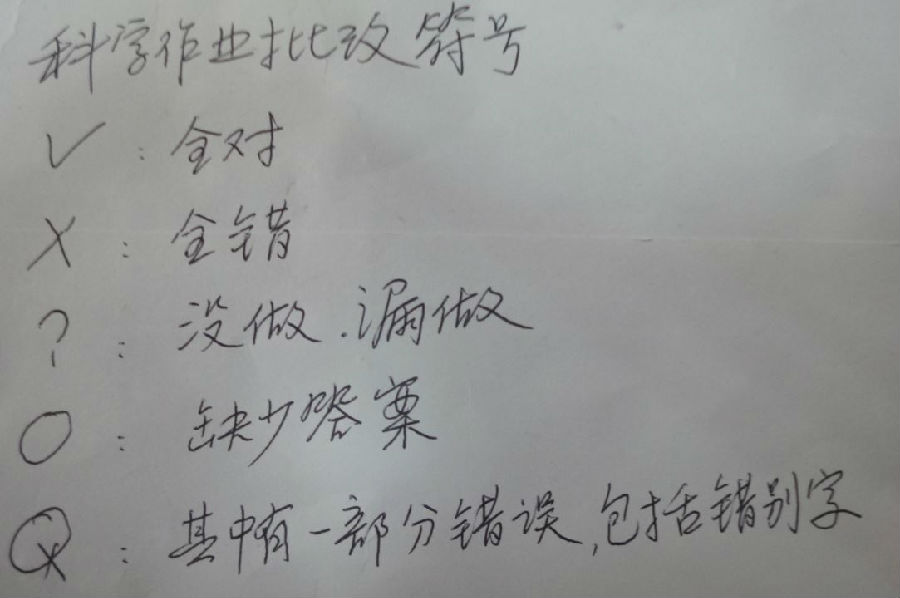 科学作业批改符号
✓：全对
×：全错
?：没做.漏做
○：缺少答案
：其中有一部分错误,包括错别字